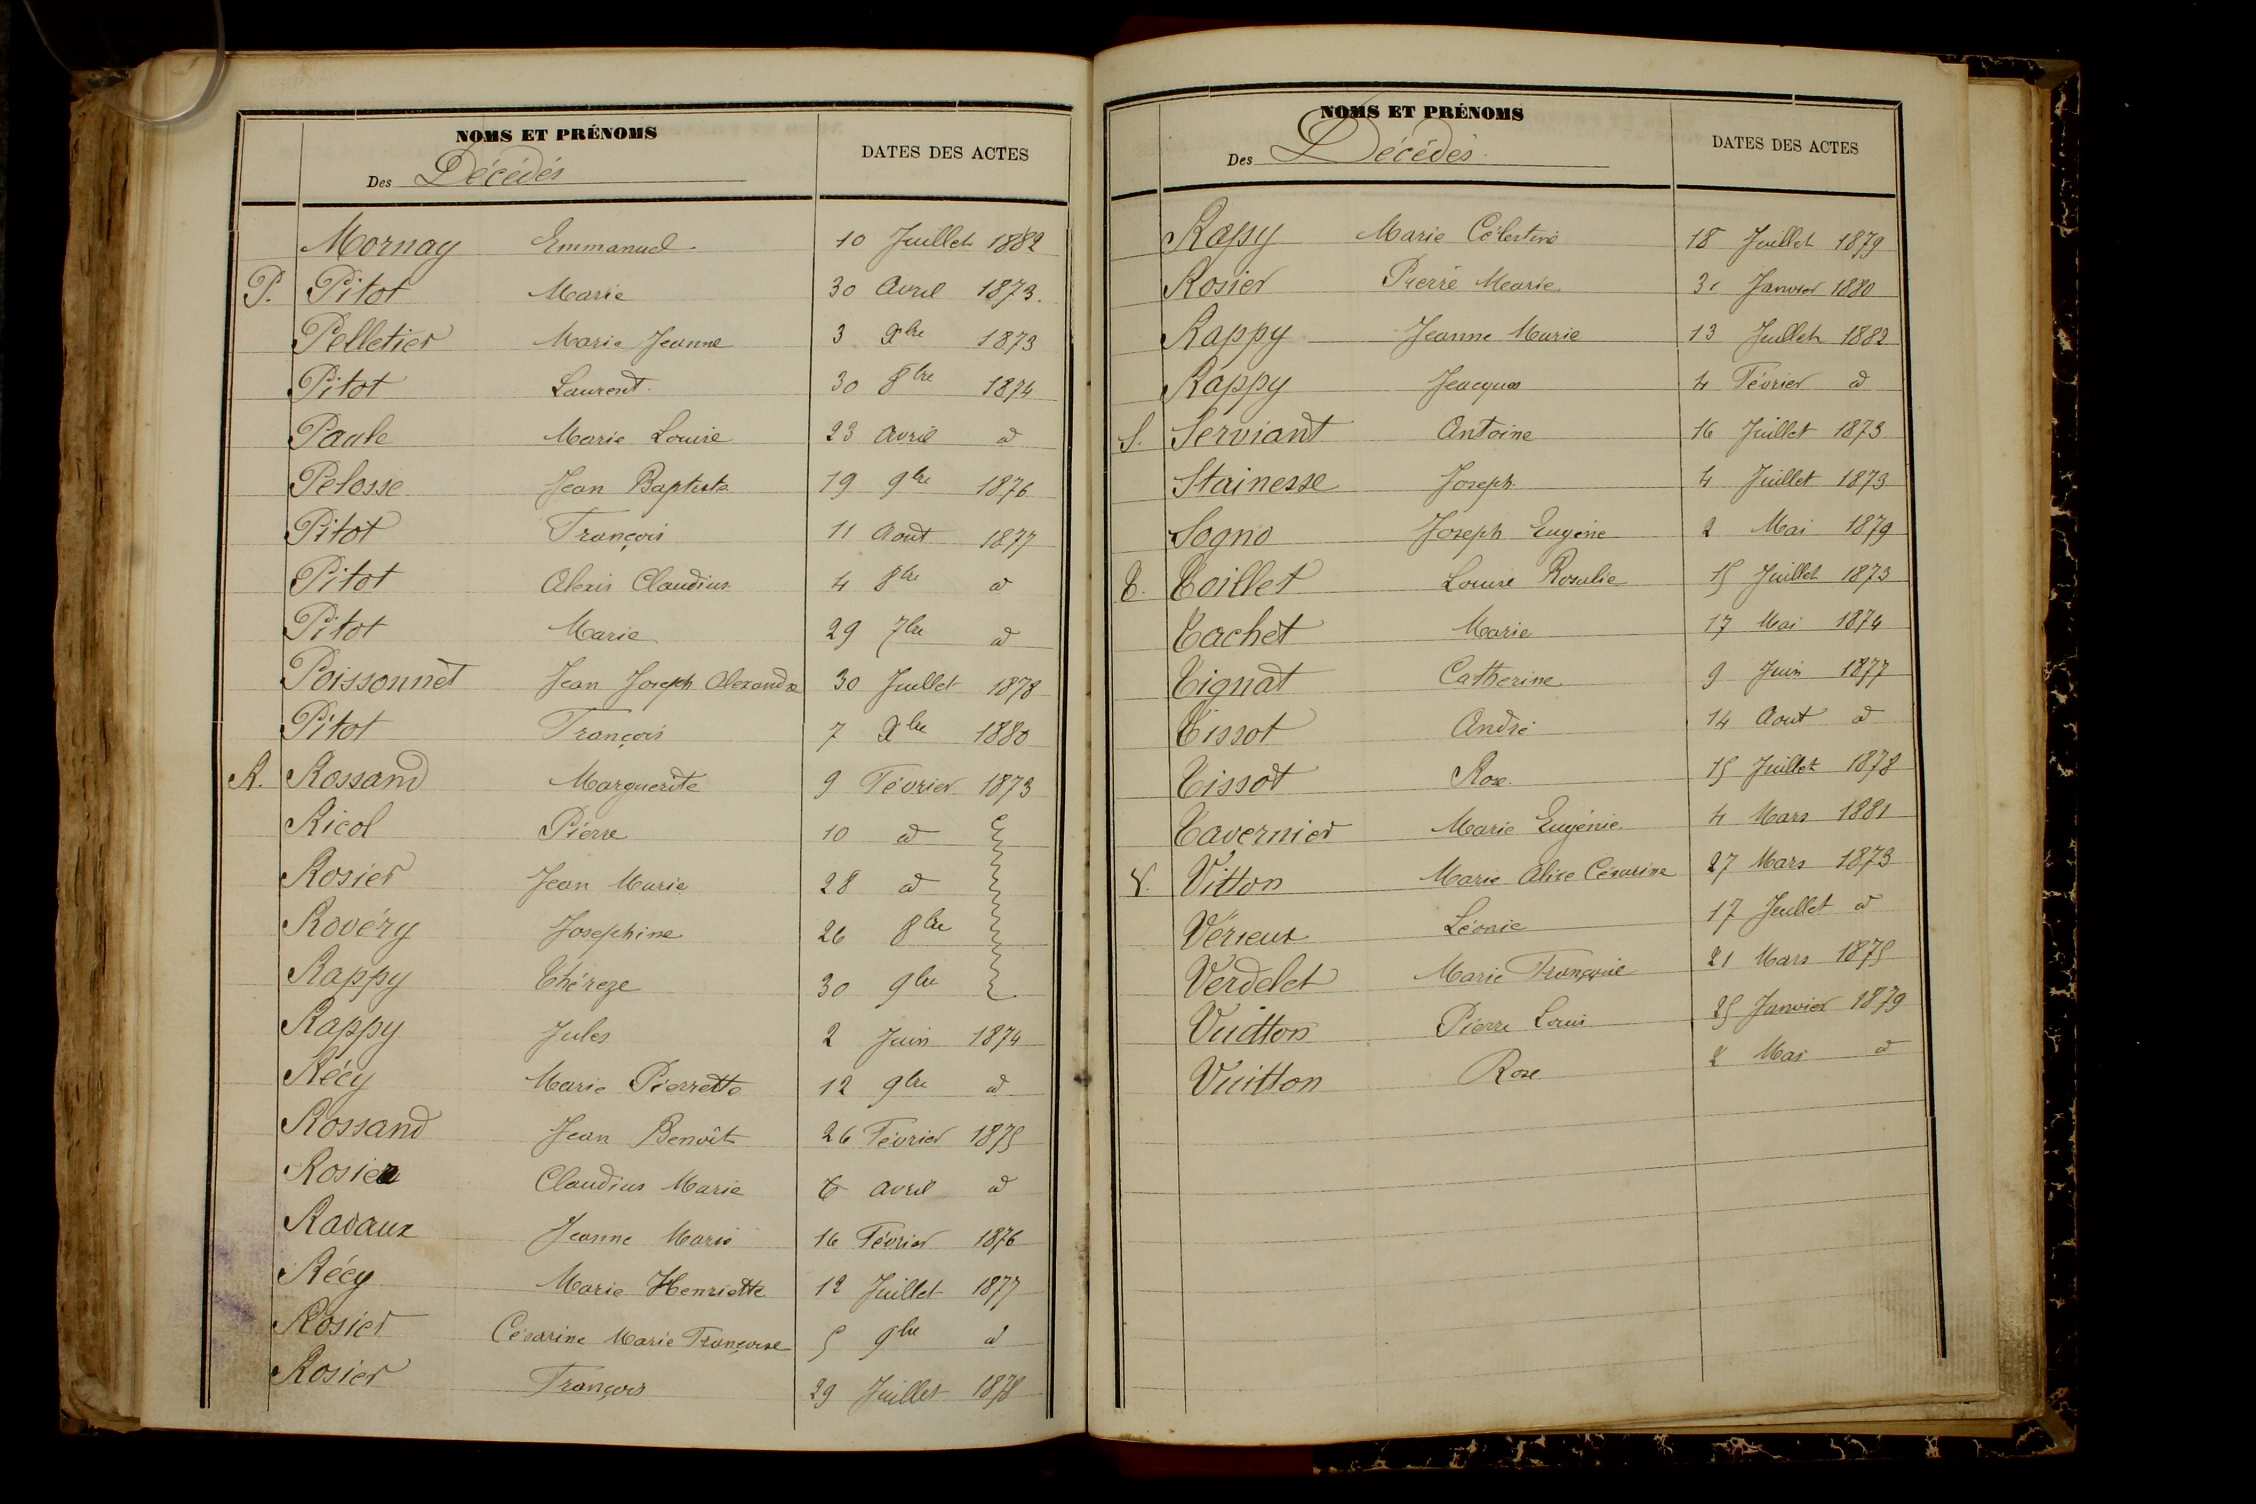 NOMS ET PRÉNOMS
DATES DES ACTES
Des Décédés
Mornay Emmanuel 10 Juillet 1882
P. Pitot Marie 30 Avril 1873.
Pelletier Marie Jeanne 3 Xbre 1873
Pitot Laurent 30 8bre 1874
Paule Marie Louise 23 Avril d
Pelosse Jean Baptiste 19 9bre 1876
Pitot François 11 Aout 1877
Pitot Alexis Claudius 4 8bre d
Pitot Marie 29 7bre d
Poissonnet Jean Joseph Alexandre 30 Juillet 1878
Pitot François 7 Xbre 1880
R. Rossand Marguerite 9 Février 1873
Ricol Pierre 10 d
Rosier Jean Marie 28 d
Rovéry Josephine 26 8bre
Rappy Théreze 30 9bre
Rappy Jules 2 Juin 1874
Récy Marie Pierrette 12 9bre d
Rossand Jean Benoît 26 Février 1875
Rosier Claudius Marie Avril d
Ravaux Jeanne Marie 16 Février 1876
Récy Marie Henriette 12 Juillet 1877
Rosier Césarine Marie Françoise 5 9bre d
Rosier François 29 Juillet 1878
NOMS ET PRÉNOMS
DATES DES ACTES
Des Décédés
Rapy Marie Célestine 18 Juillet 1879
Rosier Pierre Marie 31 Janvier 1880
Rappy Jeanne Marie 13 Juillet 1882
Rappy Jeacques 4 Février d
S. Serviant Antoine 16 Juillet 1873
Stainesse Joseph 4 Juillet 1873
Sogno Joseph Eugène 2 Mai 1879
T. Toillet Louise Rosalie 15 Juillet 1873
Tachet Marie 17 Mai 1874
Tignat Catherine 9 Juin 1877
Tissot André 14 Aout d
Tissot Rose 15 Juillet 1878
Tavernier Marie Eugénie 4 Mars 1881
V. Vitton Marie Alice Césarine 27 Mars 1873
Vérieux Léonie 17 Juillet d
Verdelet Marie Françoise 21 Mars 1875
Vuitton Pierre Louis 25 Janvier 1879
Vuitton Rose 2 Mai d